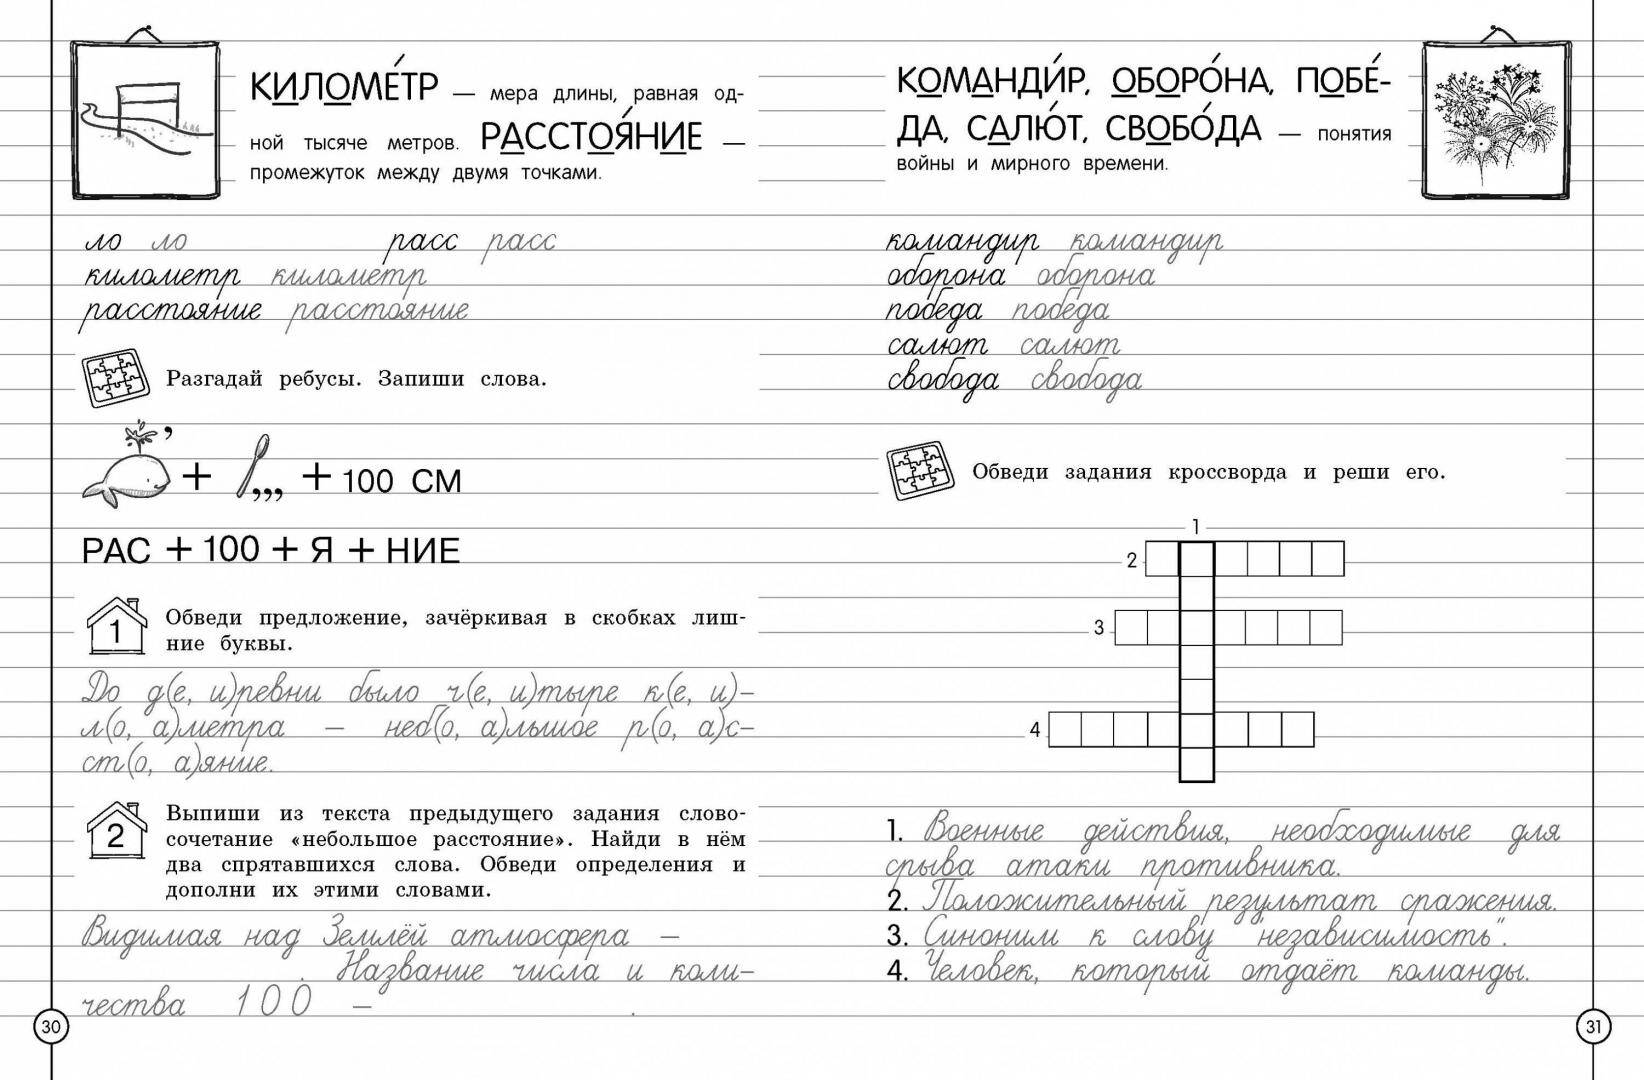 КИЛОМЕ́ТР — мера длины, равная од-
ной тысяче метров. РАССТОЯ́НИЕ —
промежуток между двумя точками.
ло ло расс расс
километр километр
расстояние расстояние
Разгадай ребусы. Запиши слова.
’ + ,,, + 100 СМ
РАС + 100 + Я + НИЕ
1
Обведи предложение, зачёркивая в скобках лиш-
ние буквы.
До д(е, и)ревни было ч(е, и)тыре к(е, и)-
л(о, а)метра — неб(о, а)льшое р(о, а)с-
ст(о, а)яние.
2
Выпиши из текста предыдущего задания слово-
сочетание «небольшое расстояние». Найди в нём
два спрятавшихся слова. Обведи определения и
дополни их этими словами.
Видимая над Землёй атмосфера —
. Название числа и коли-
чества 100 — .
30
КОМАНДИ́Р, ОБОРО́НА, ПОБЕ́-
ДА, САЛЮ́Т, СВОБО́ДА — понятия
войны и мирного времени.
командир командир
оборона оборона
победа победа
салют салют
свобода свобода
Обведи задания кроссворда и реши его.
1
2
3
4
1. Военные действия, необходимые для
срыва атаки противника.
2. Положительный результат сражения.
3. Синоним к слову "независимость".
4. Человек, который отдаёт команды.
31